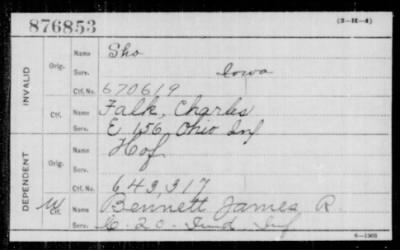 876853
(3-H-4)
INVALID
Orig.
Name Sho
Serv. Iowa
Ctf. No. 670619
Ctf.
Name Falk, Charles
Serv. E 156, Ohio Inf
DEPENDENT
Orig.
Name Hof
Serv.
Ctf. No. 643,317
W Ctf.
Name Bennett James R.
Serv. 20 Ind. Inf